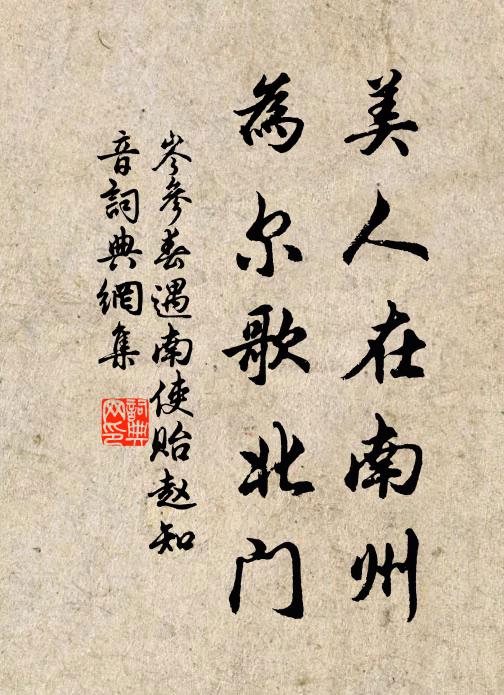 美人在南州
為尔歌北门
岑參春遇南使贻赵知
音詞典網集
詞典
网印